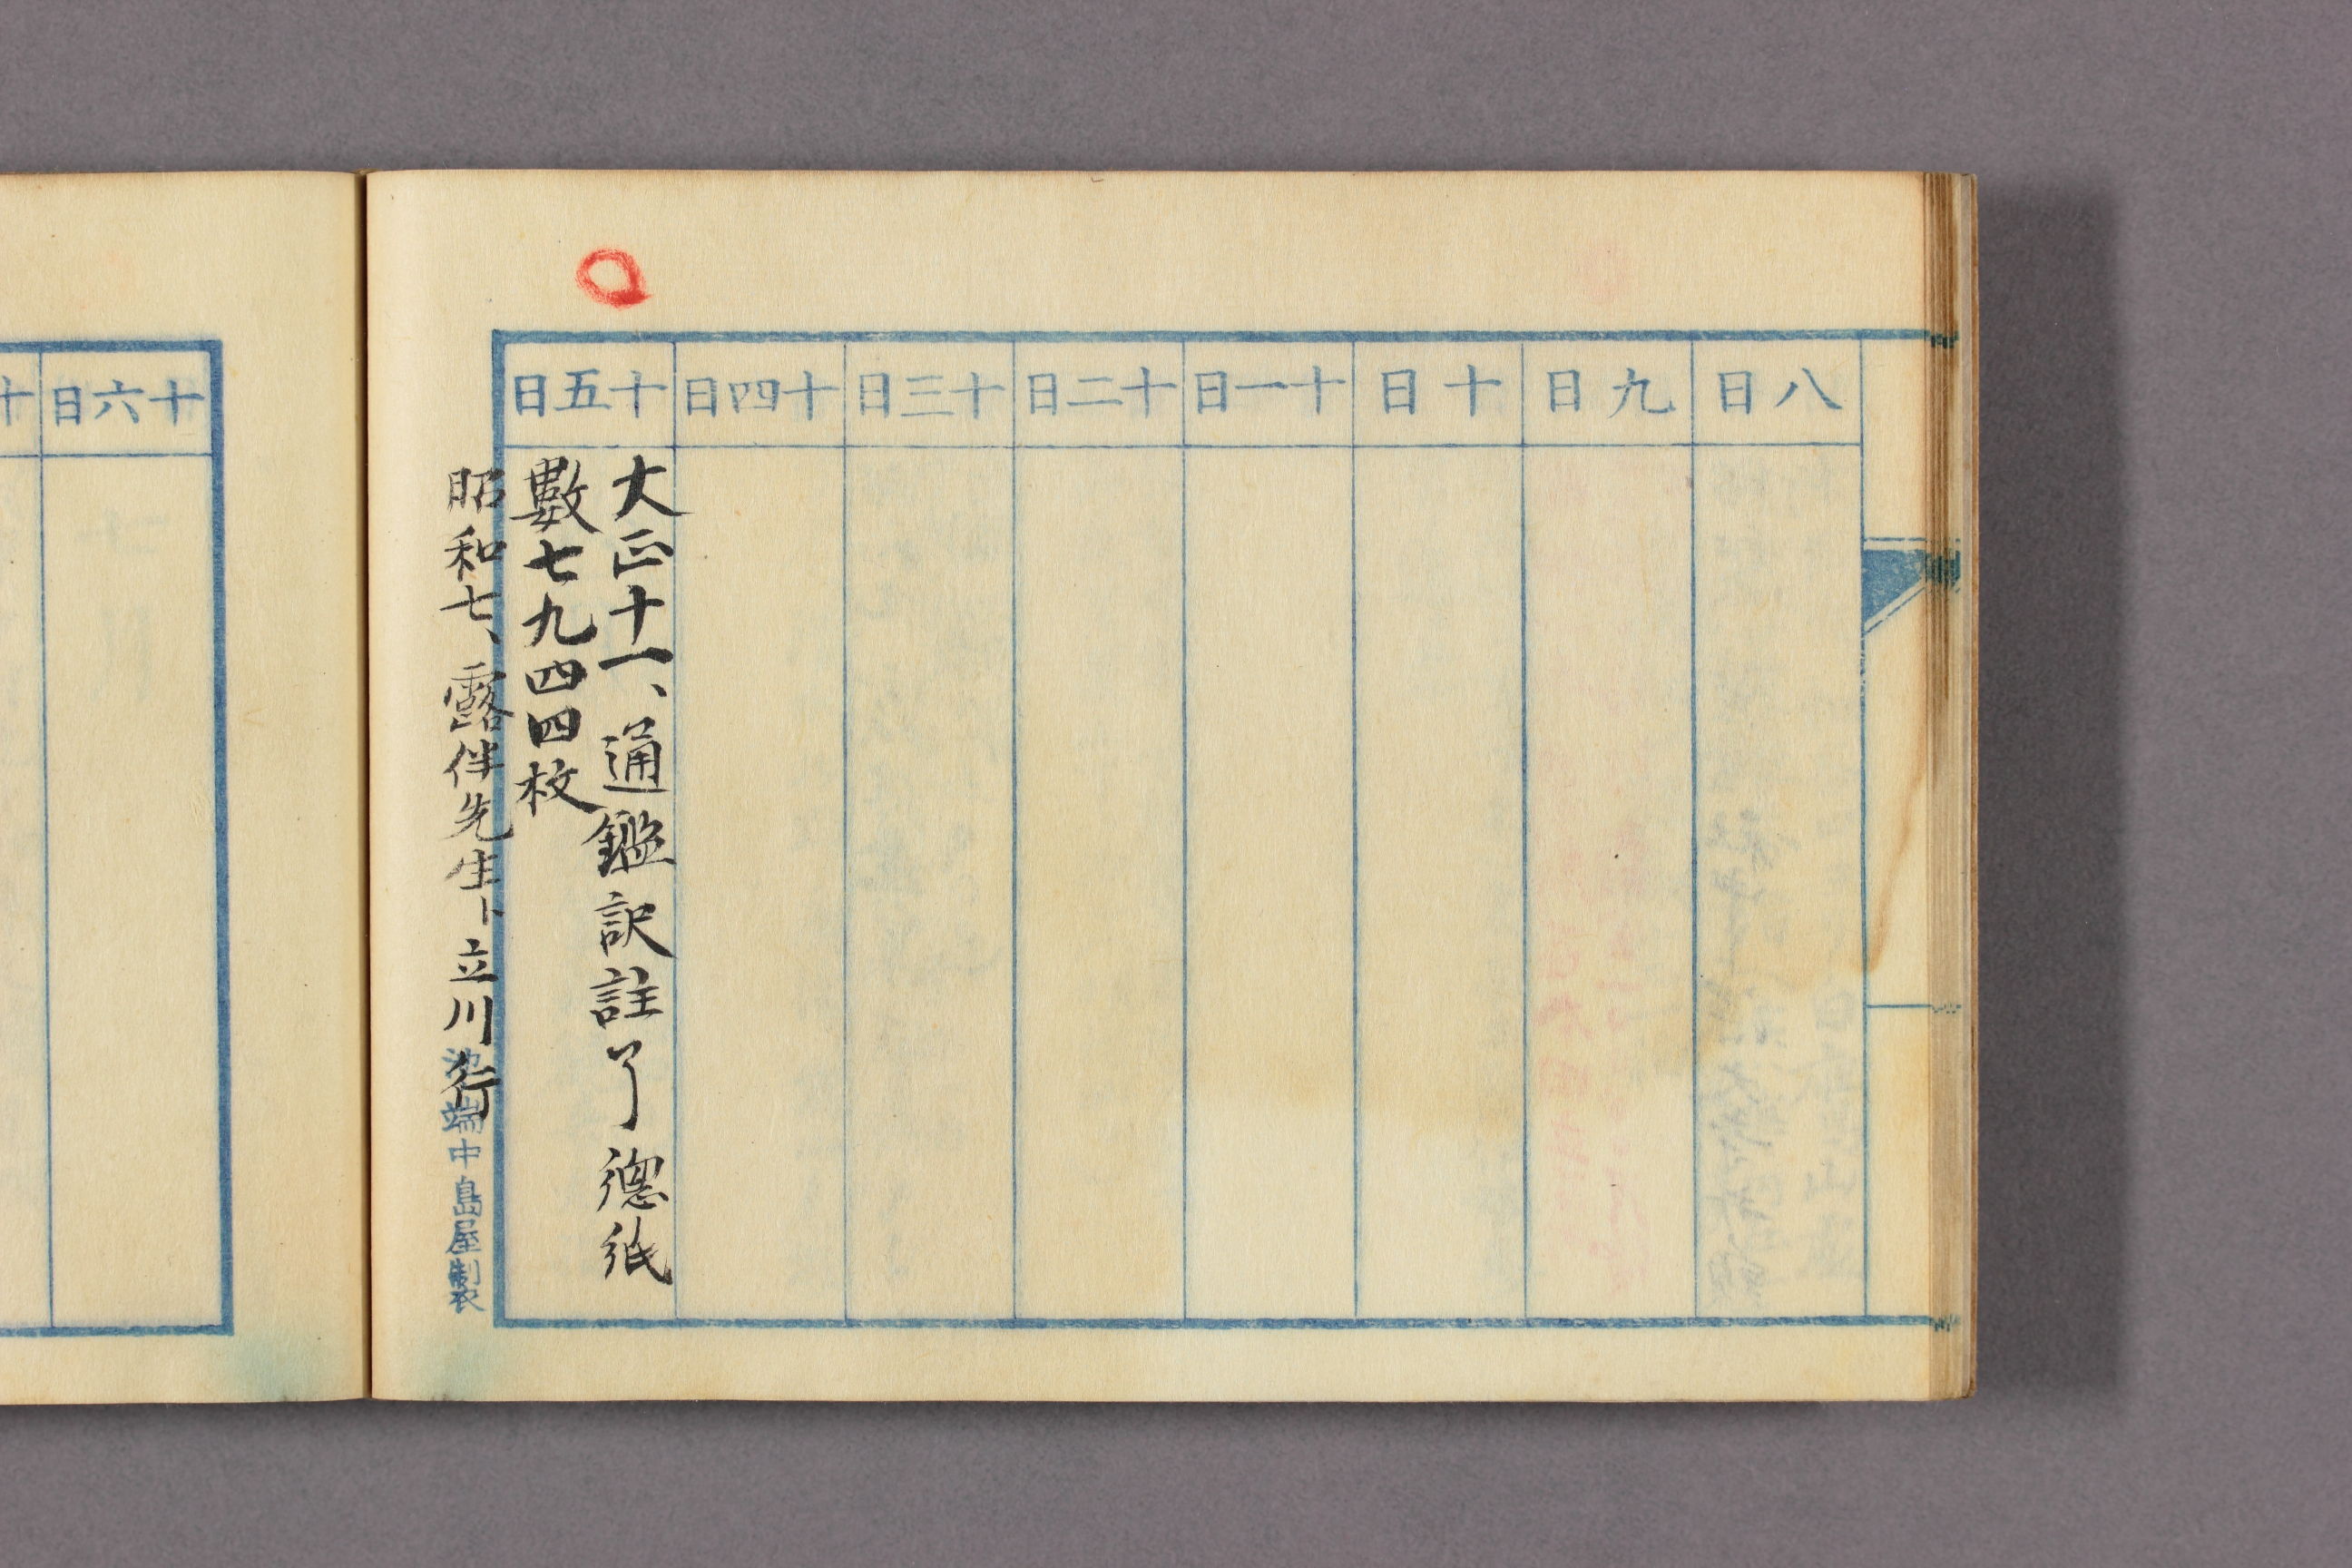 八日
九日
十日
十一日
十二日
十三日
十四日
十五日
大正十一、通鑑訳註了 總紙
數七九四四枚
昭和七、露伴先生ト立川行
池端中島屋製
十六日
十